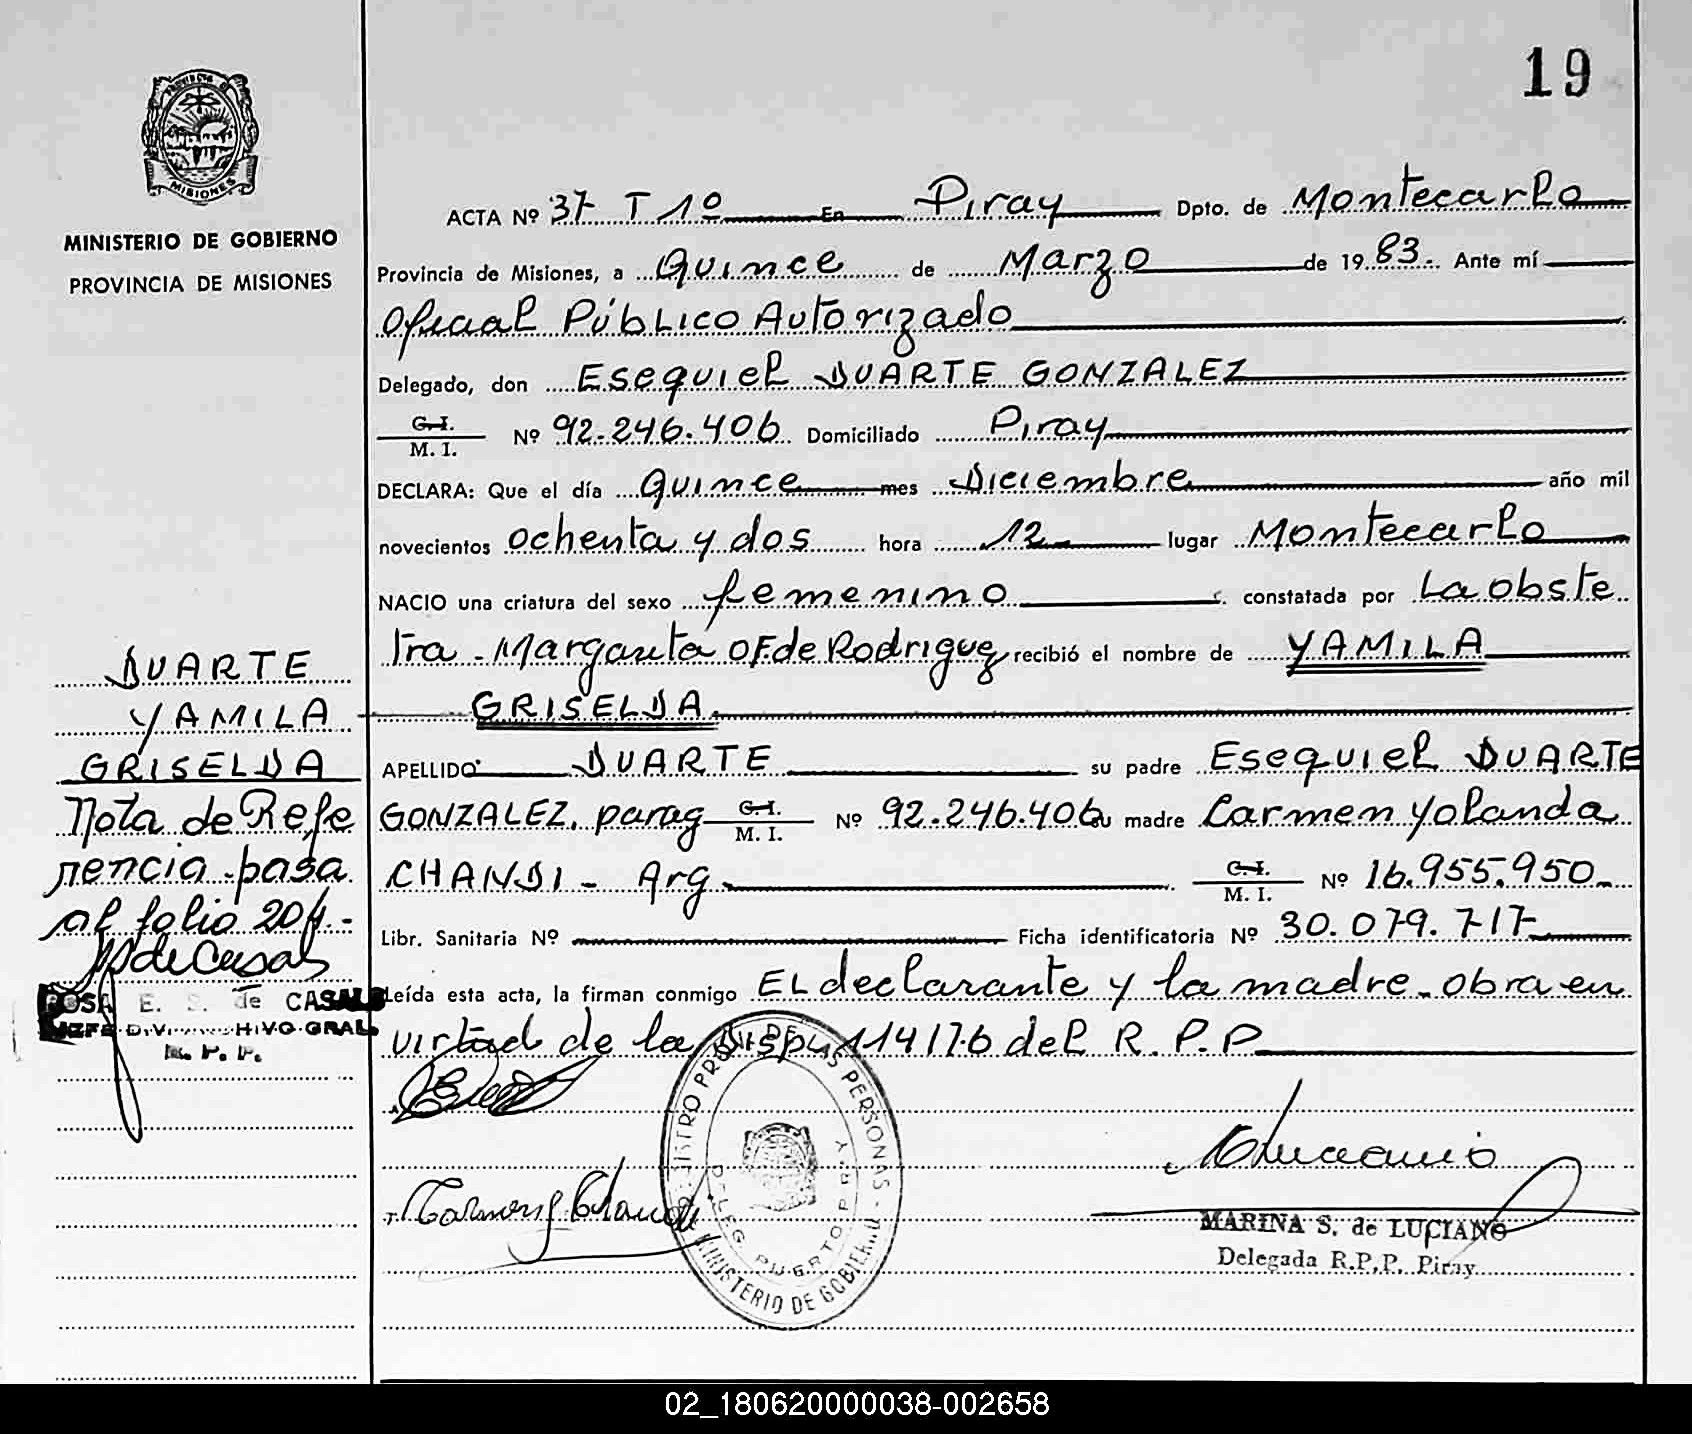 19
PROVINCIA DE
MISIONES
MINISTERIO DE GOBIERNO
PROVINCIA DE MISIONES
ACTA Nº 37 T 1º En Piray Dpto. de Montecarlo
Provincia de Misiones, a Quince de Marzo de 1983. Ante mí
Oficial Público Autorizado
Delegado, don Esequiel DUARTE GONZALEZ
C. I.
M. I. Nº 92.246.406 Domiciliado Piray
DECLARA: Que el día Quince mes Diciembre año mil
novecientos ochenta y dos hora 12 lugar Montecarlo
NACIO una criatura del sexo femenino constatada por La obste
tra - Margarita OF de Rodriguez recibió el nombre de YAMILA
GRISELDA
APELLIDO DUARTE su padre Esequiel DUARTE
GONZALEZ. parag C. I. M. I. Nº 92.246.406 su madre Carmen Yolanda
CHANDI - Arg C. I. M. I. Nº 16.955.950
Libr. Sanitaria Nº Ficha identificatoria Nº 30.079.717
Leída esta acta, la firman conmigo EL declarante y la madre - obra en
virtud de la Disp. 114/76 del R. P. P
DUARTE
YAMILA
GRISELDA
Nota de Refe
rencia - pasa
al folio 204.-
ROSA E. S. de CASALS
JEFE DIV. ARCHIVO GRAL.
R. P. P.
REGISTRO PROV. DE LAS PERSONAS - MINISTERIO DE GOBIERNO
DELEG. PUERTO PIRAY
MARINA S. de LUCIANO
Delegada R.P.P. Piray
02_180620000038-002658